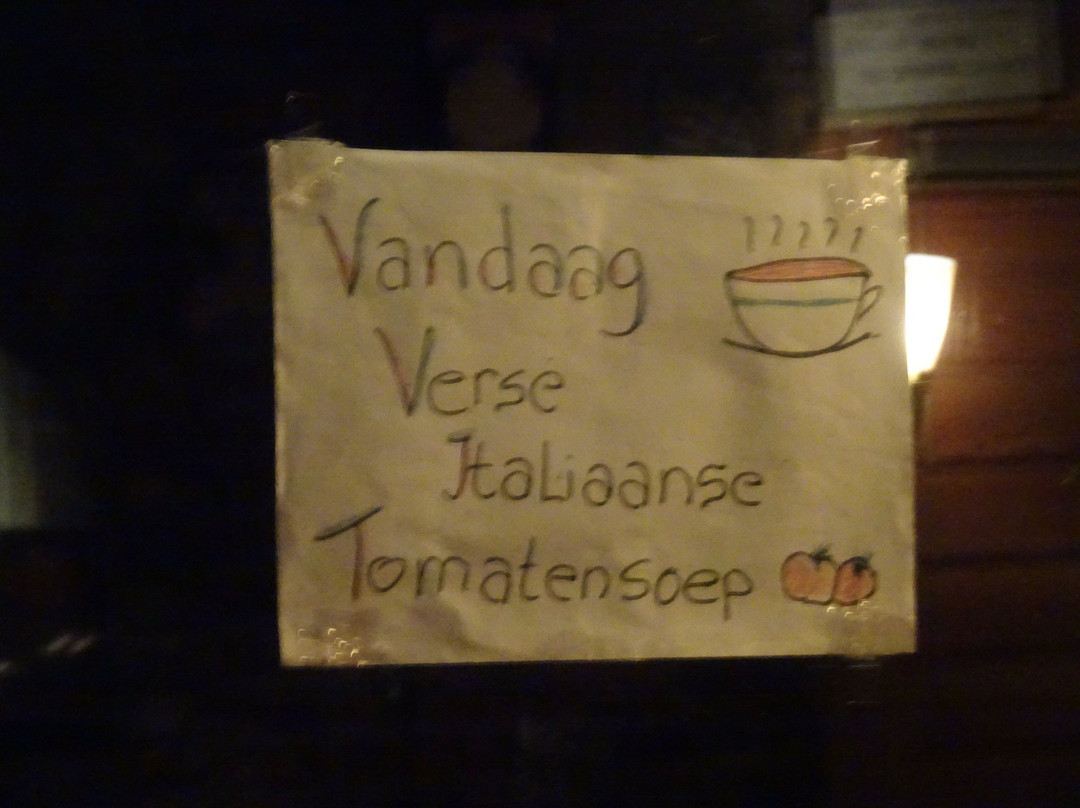 Vandaag
Verse
Italiaanse
Tomatensoep